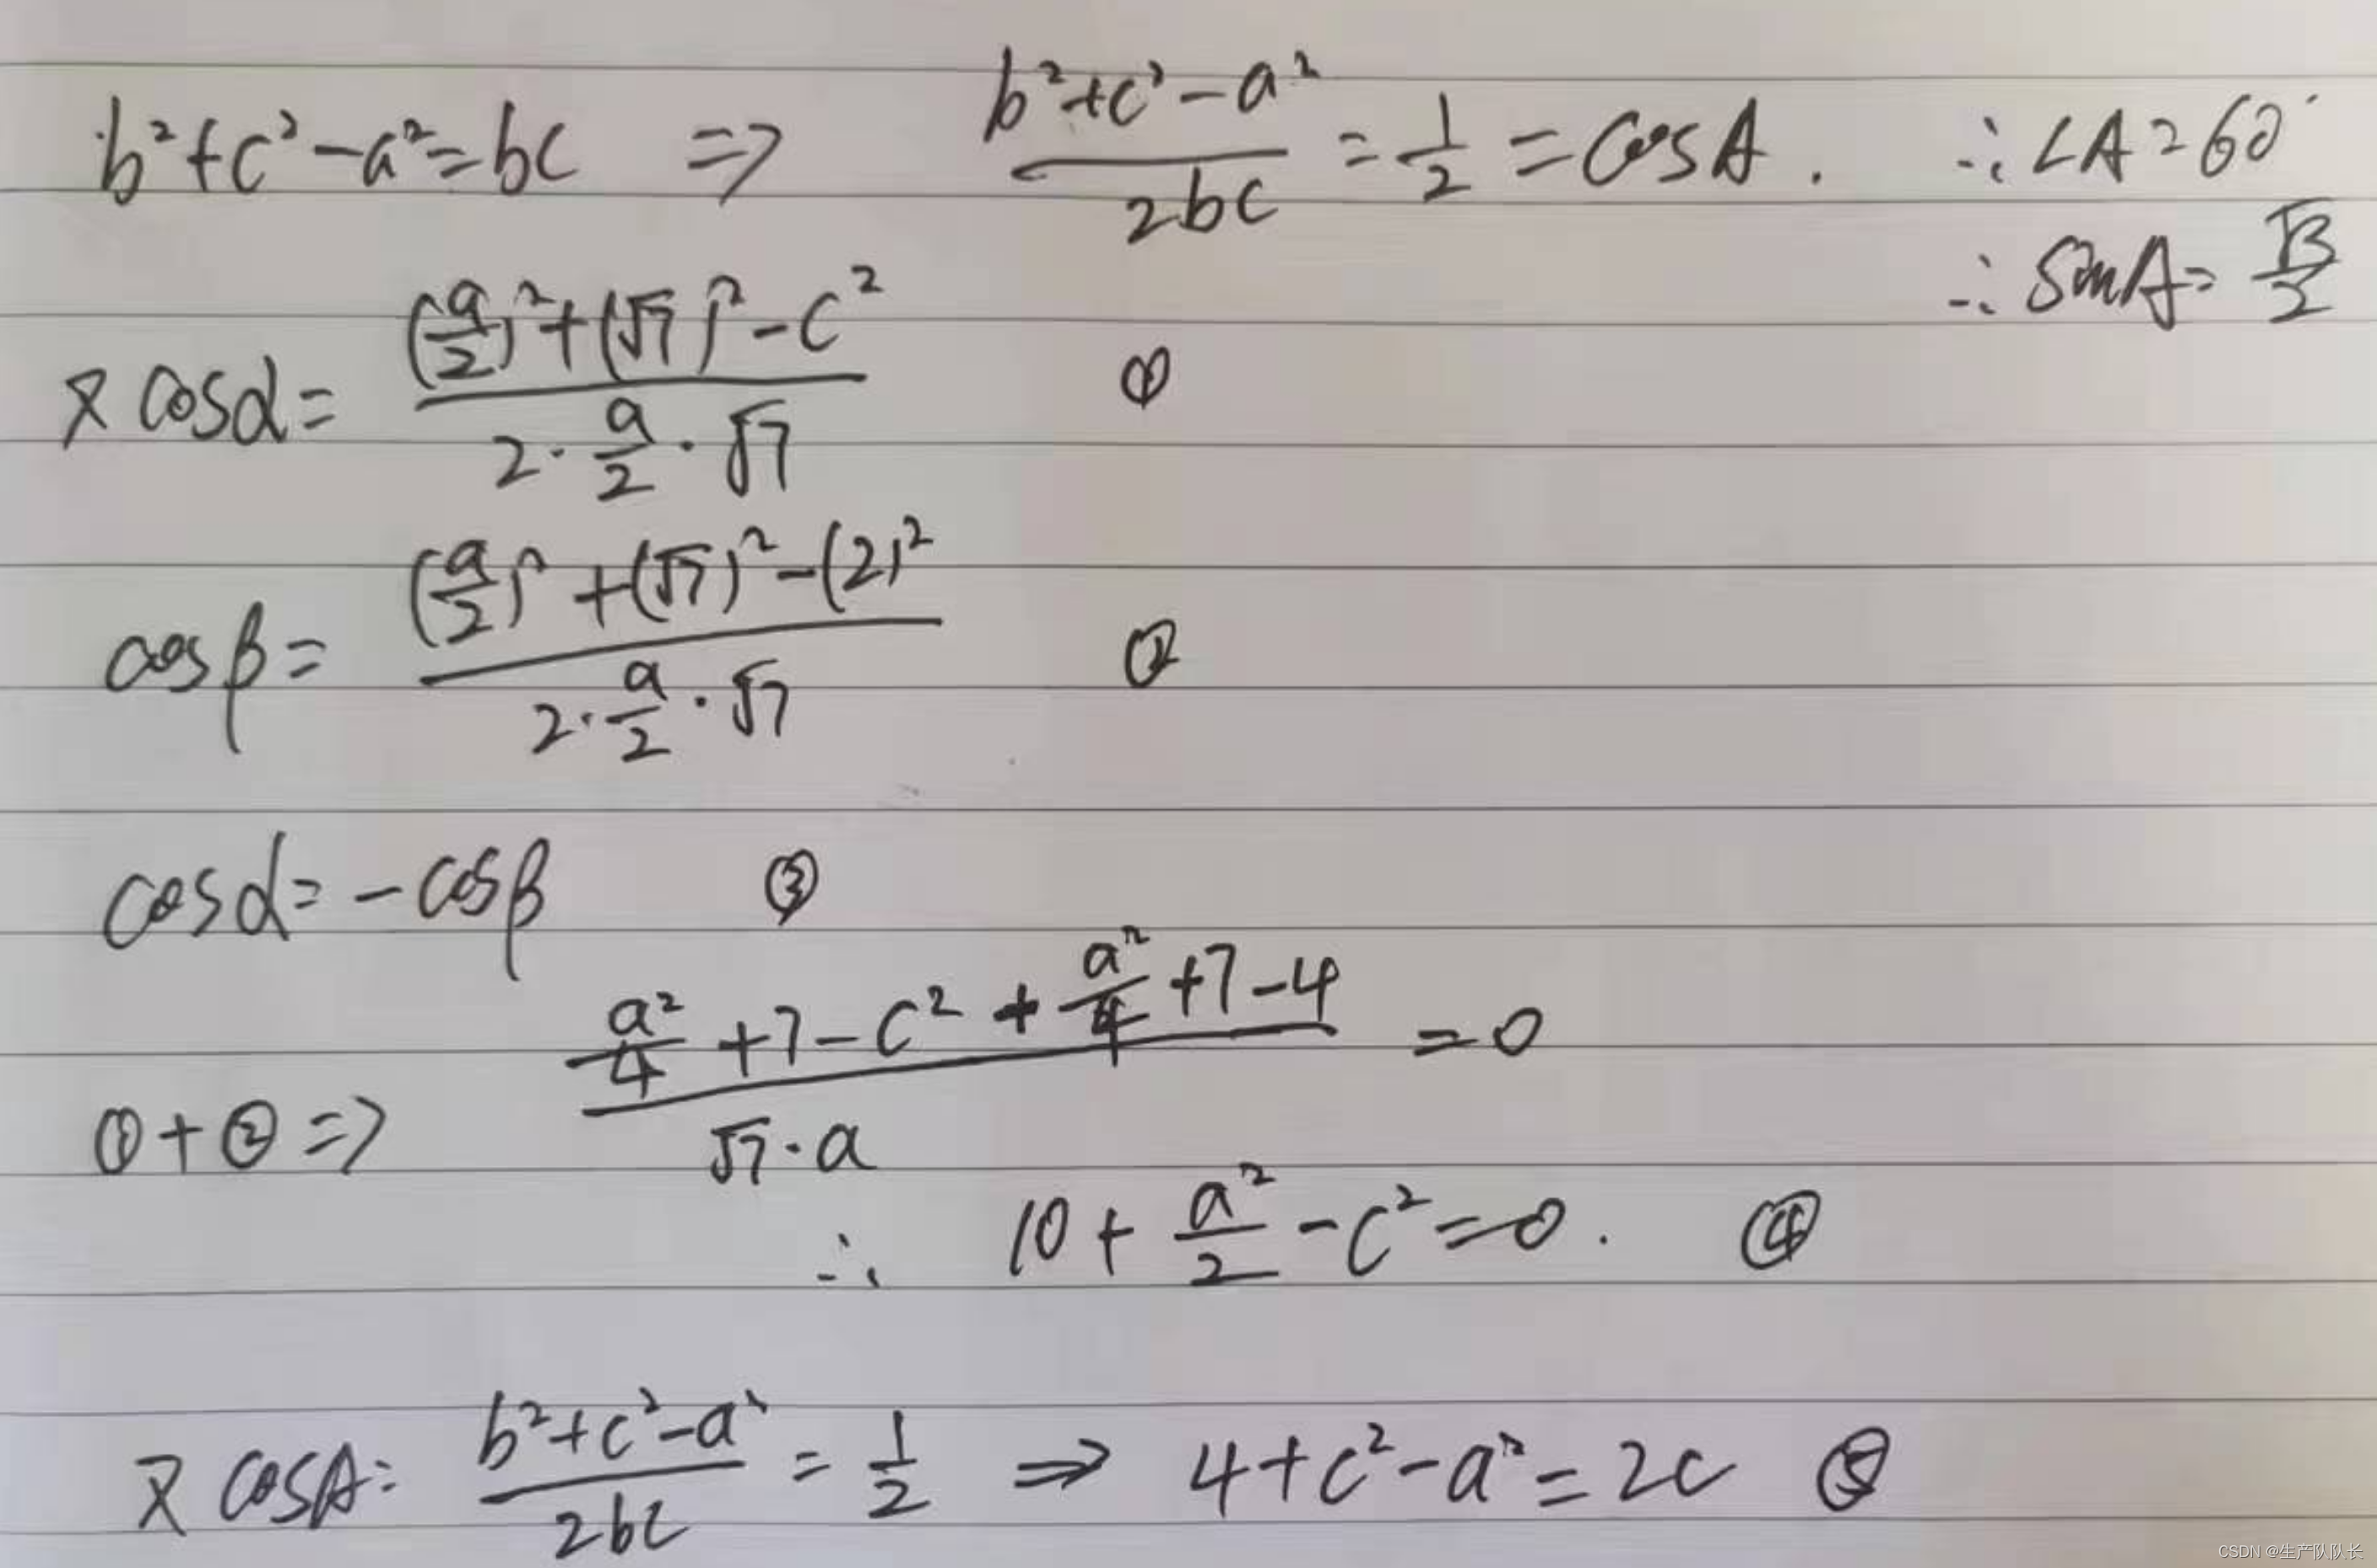 b²+c²-a²=bc ⇒ (b²+c²-a²)/(2bc) = 1/2 = cosA. ∴∠A=60°
∴ sinA = √3/2
又 cosα = ((a/2)²+(√7)²-c²)/(2·a/2·√7) ①
cosβ = ((a/2)²+(√7)²-(2)²)/(2·a/2·√7) ②
cosα = -cosβ ③
①+② ⇒ (a²/4+7-c²+a²/4+7-4)/(√7·a) = 0
∴ 10+a²/2-c²=0. ④
又 cosA = (b²+c²-a²)/(2bc) = 1/2 ⇒ 4+c²-a²=2c ⑤
CSDN @生产队队长